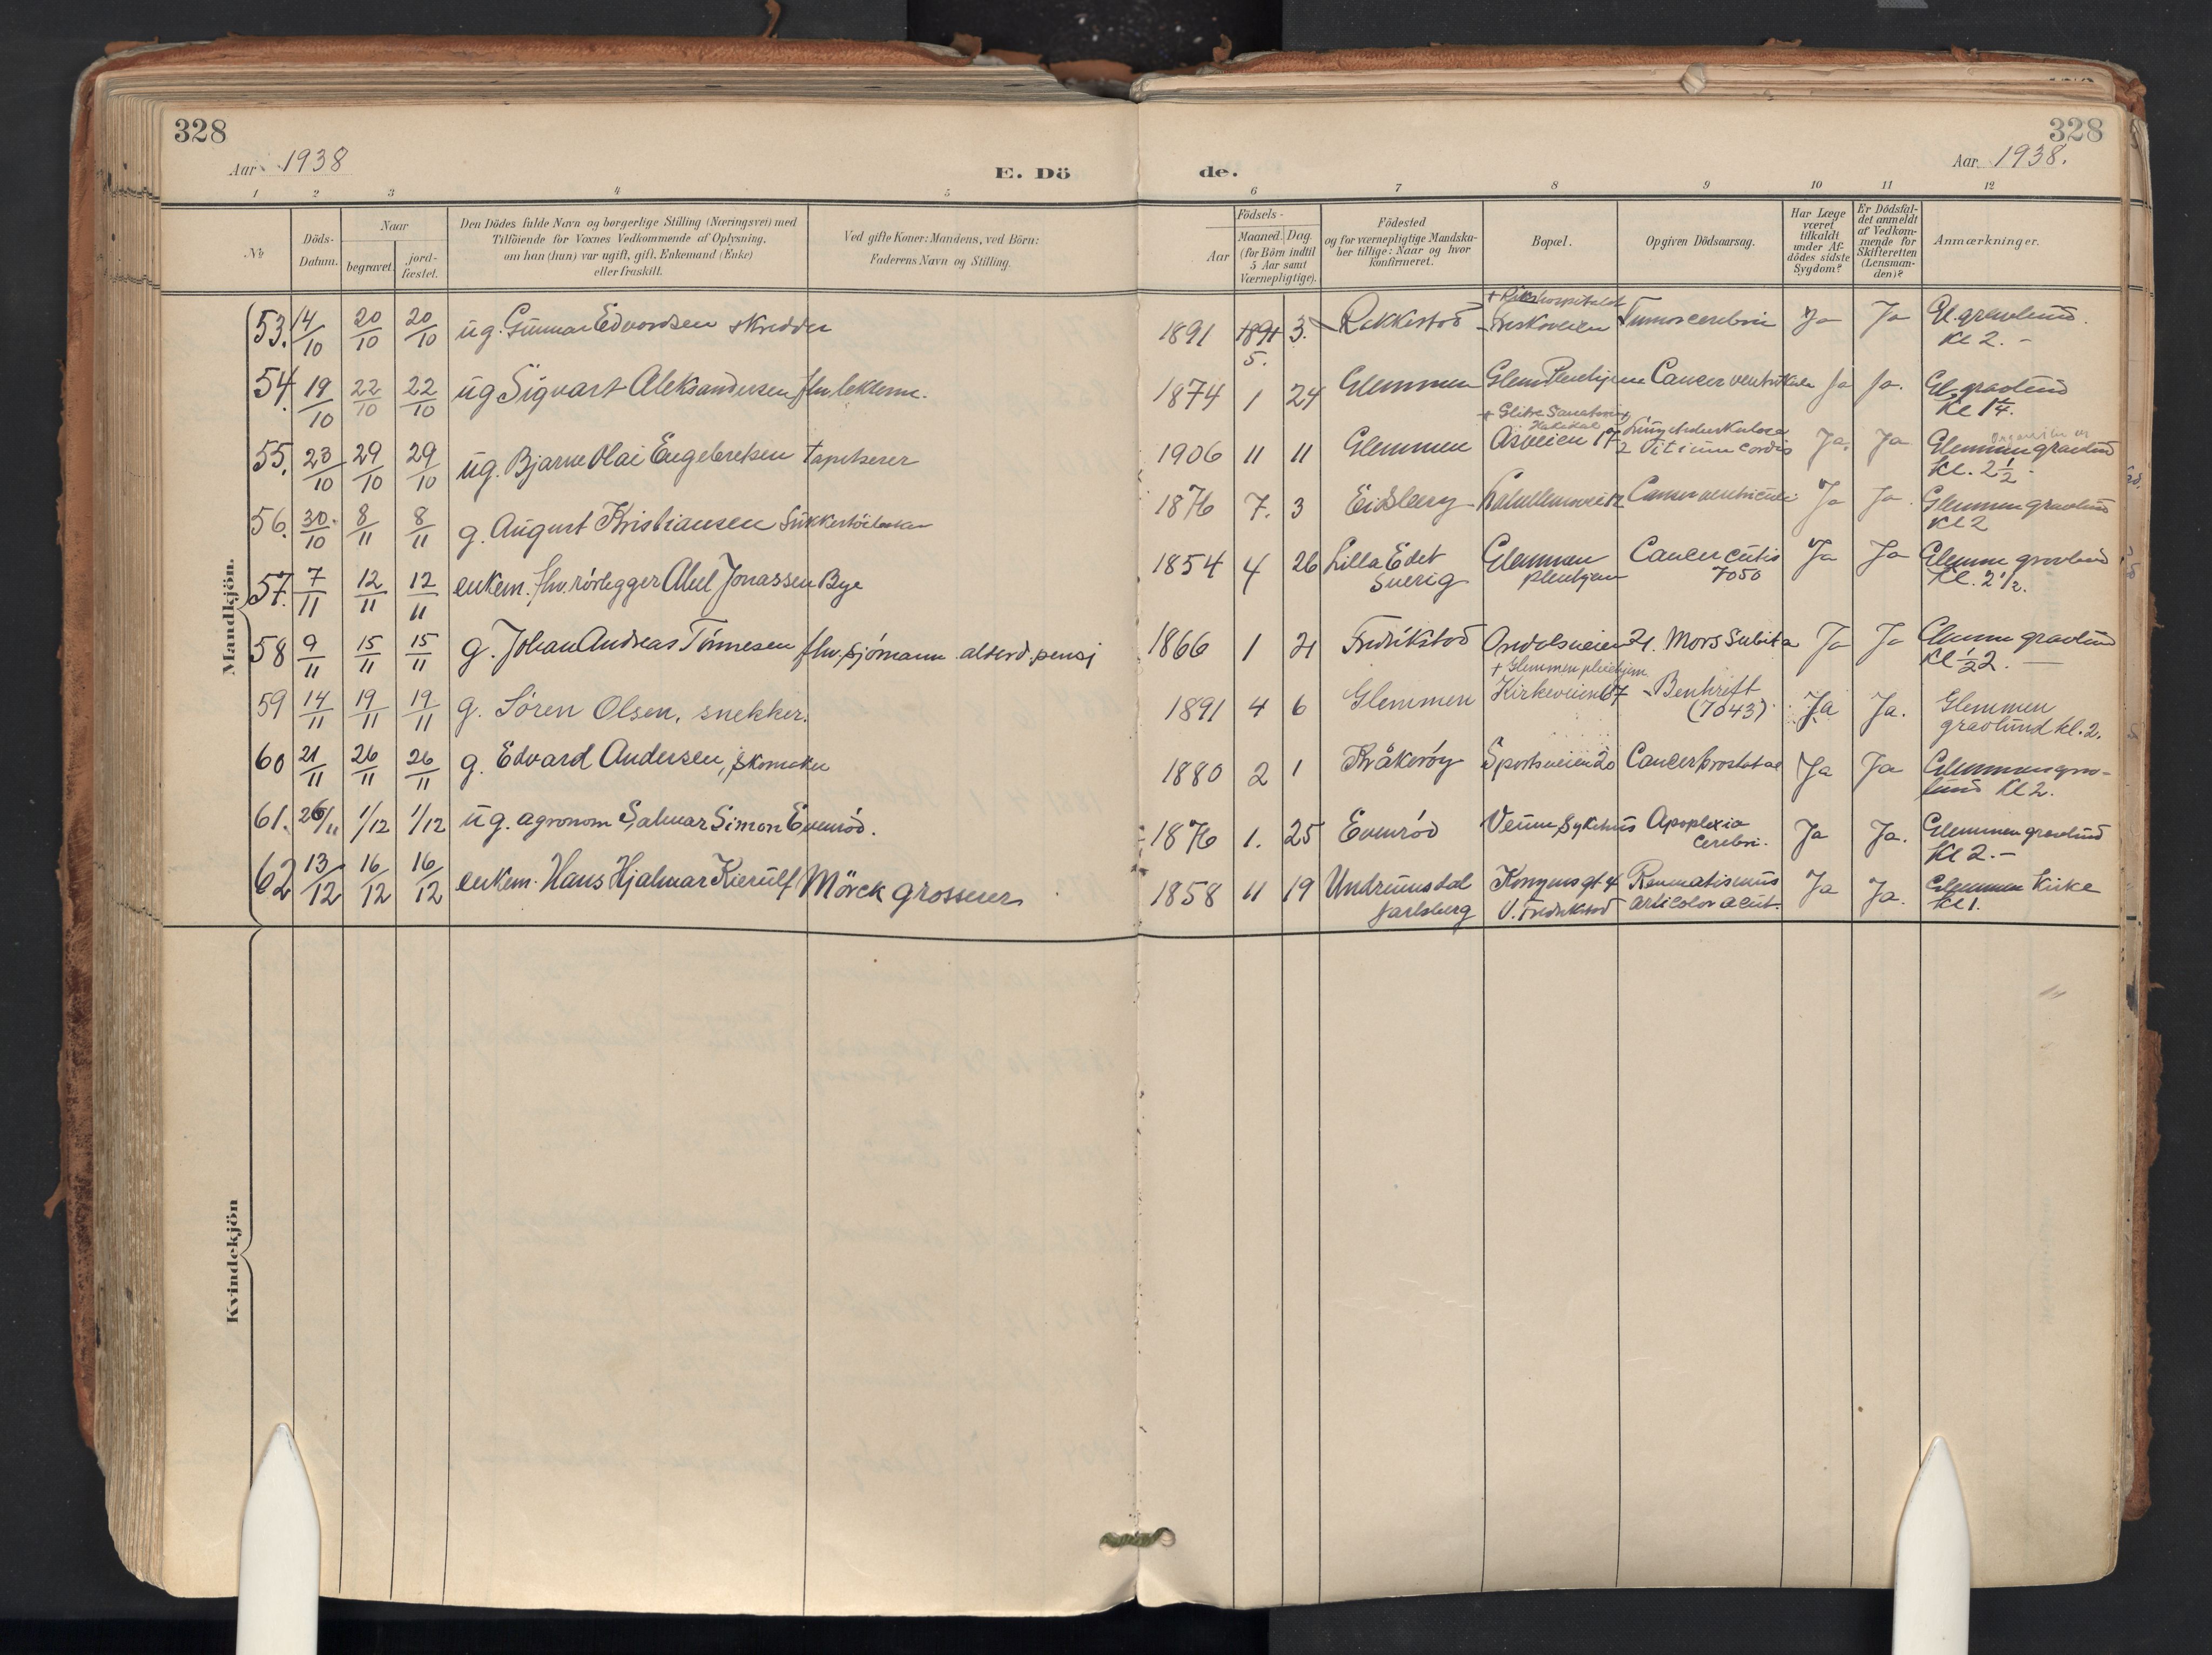 328
328
Aar 1938
E. Dö
de.
Aar 1938.
1 2 3 4 5 6 7 8 9 10 11 12
No
Döds-
Datum.
Naar
begravet.
jord-
fæstet.
Den Dödes fulde Navn og borgerlige Stilling (Næringsvei) med
Tilföiende for Voxnes Vedkommende af Oplysning,
om han (hun) var ugift, gift, Enkemand (Enke)
eller fraskilt.
Ved gifte Koner: Mandens, ved Börn:
Faderens Navn og Stilling.
Födsels-
Aar
Maaned. Dag.
(for Börn indtil
5 Aar samt
Værnepligtige).
Födested
og for værnepligtige Mandska-
ber tillige: Naar og hvor
konfirmeret.
Bopæl.
Opgiven Dödsaarsag.
Har Læge
været
tilkaldt
under Af-
dödes sidste
Sygdom?
Er Dödsfal-
det anmeldt
af Vedkom-
mende for
Skifteretten
(Lensman-
den)?
Anmærkninger.
Mandkjön.
+ Rikshospitalet
53. 14/10 20/10 20/10 ug. Gunnar Edvardsen skredder 1891 1891 3. Rakkestad Tumor cerebri Ja Ja Gl. gravlund.
5. Kl 2. -
54. 19/10 22/10 22/10 ug Sigvart Aleksandersen 1874 1 24 Glemmen Glem Pleiehjem Cancer ventrikule Ja Ja. Gl. gravlund
Kl 1 1/4.
+ Glitre Sanatorium
Hakadal
55. 23/10 29/10 29/10 ug. Bjarne Olai Engebretsen tapetserer 1906 11 11 Glemmen Åsveien 17 Lungetuberkulose
2 Vitium cordis Ja. Ja Glemmen gravlund
Kl. 2 1/2 -
56. 30/10 8/11 8/11 g. August Kristiansen 1876 7. 3 Eidsberg Cancer ventriculi Ja Ja. Glemmen gravlund
Kl 2
57. 7/11 12/11 12/11 enkem. fhv. rörlegger Abel Jonassen Bye 1854 4 26 Lilla Edet
Sverig Glemmen
pleiehjem Cancer cutis
7050 Ja Ja Glemm gravlund
Kl. 2 1/2.
58 9/11 15/11 15/11 g. Johan Andreas Tönnesen fhv. sjömann alderd. pensj 1866 1 21 Fredrikstad 21. Mors Subita Ja Ja Glemm gravlund
Kl 1/2 2.
+ Glemmen pleiehjem
59 14/11 19/11 19/11 g. Sören Olsen, snekker. 1891 4 6 Glemmen Kirkeveien 67 - Benkreft
(7043) Ja Ja. Glemmen
gravlund kl. 2.
60 21/11 26/11 26/11 g. Edvard Andersen, skomaker 1880 2 1 Kråkeröy Sportsveien 20 Cancer prostatae Ja Ja Glemmen grav-
lund Kl 2.
61. 26/11 1/12 1/12 ug. agronom Salmar Simon Evenröd. 1876 1. 25 Evenröd Veum Sykehus Apoplexia
Cerebri. Ja Ja. Glemmen gravlund
Kl 2. -
62 13/12 16/12 16/12 enkem. Hans Hjalmar Kierulf Mörck grosserer 1858 11 19 Undrumsdal
Jarlsberg Kongens gt 4
V. Fredrikstad Reumatismus
articolor acut. Ja Ja. Glemmen Kirke
Kl 1.
Kvindekjön